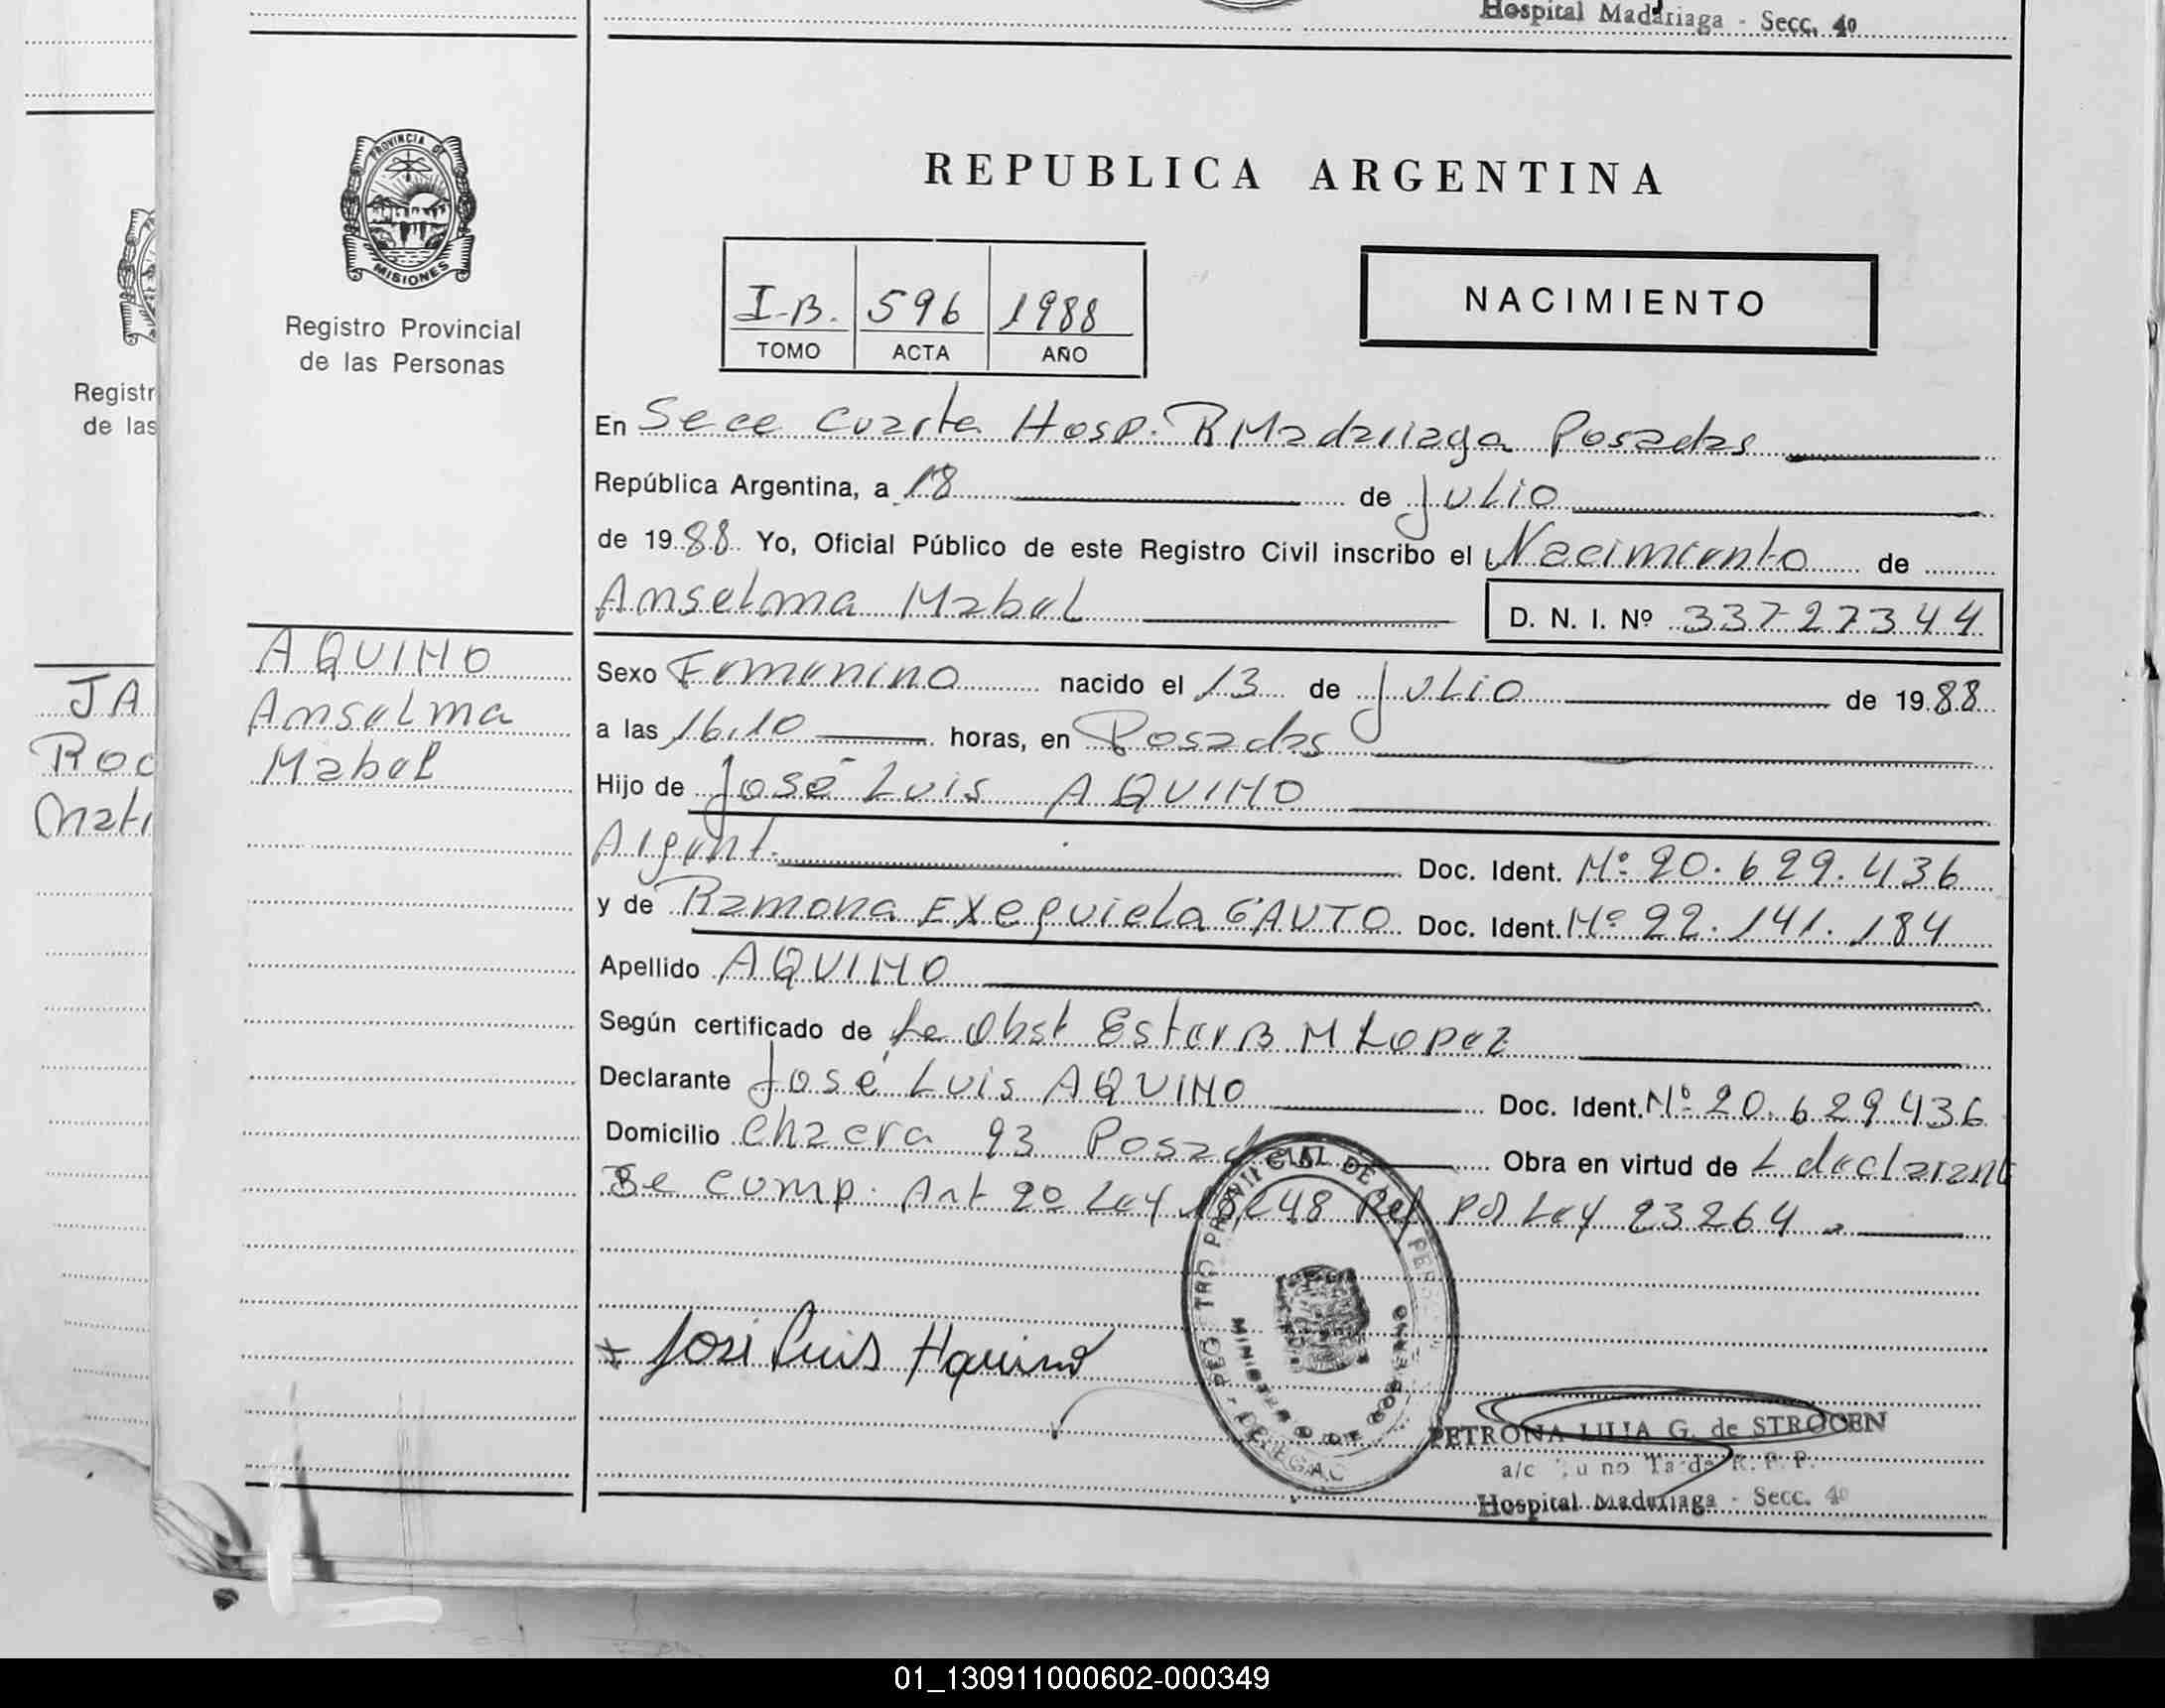 Hospital Madariaga - Secc. 4º
PROVINCIA DE
MISIONES
Registro Provincial
de las Personas
REPUBLICA ARGENTINA
I-B. 596 1988
TOMO ACTA AÑO
NACIMIENTO
Registr
de las
En Secc Cuarta Hosp. R Madariaga Posadas
República Argentina, a 18 de Julio
de 1988 Yo, Oficial Público de este Registro Civil inscribo el Nacimiento de
Anselma Mabel D. N. I. Nº 33727344
AQUINO
Anselma
Mabel
JA
Roc
Mati
Sexo Femenino nacido el 13 de Julio de 1988
a las 16,10 horas, en Posadas
Hijo de José Luis AQUINO
Argent. Doc. Ident. Nº 20.629.436
y de Ramona Exequiela GAUTO Doc. Ident. Nº 22.141.184
Apellido AQUINO
Según certificado de La Obst Ester B M Lopez
Declarante José Luis AQUINO Doc. Ident. Nº 20.629436
Domicilio Chacra 93 Posad Obra en virtud de L declarante
Se comp. Art 20 Ley 18248 Ref por Ley 23264
José Luis Aquino
PETRONA LILIA G. de STROCEN
a/c Turno Tarde R. P. P.
Hospital Madariaga - Secc. 4º
01_130911000602-000349